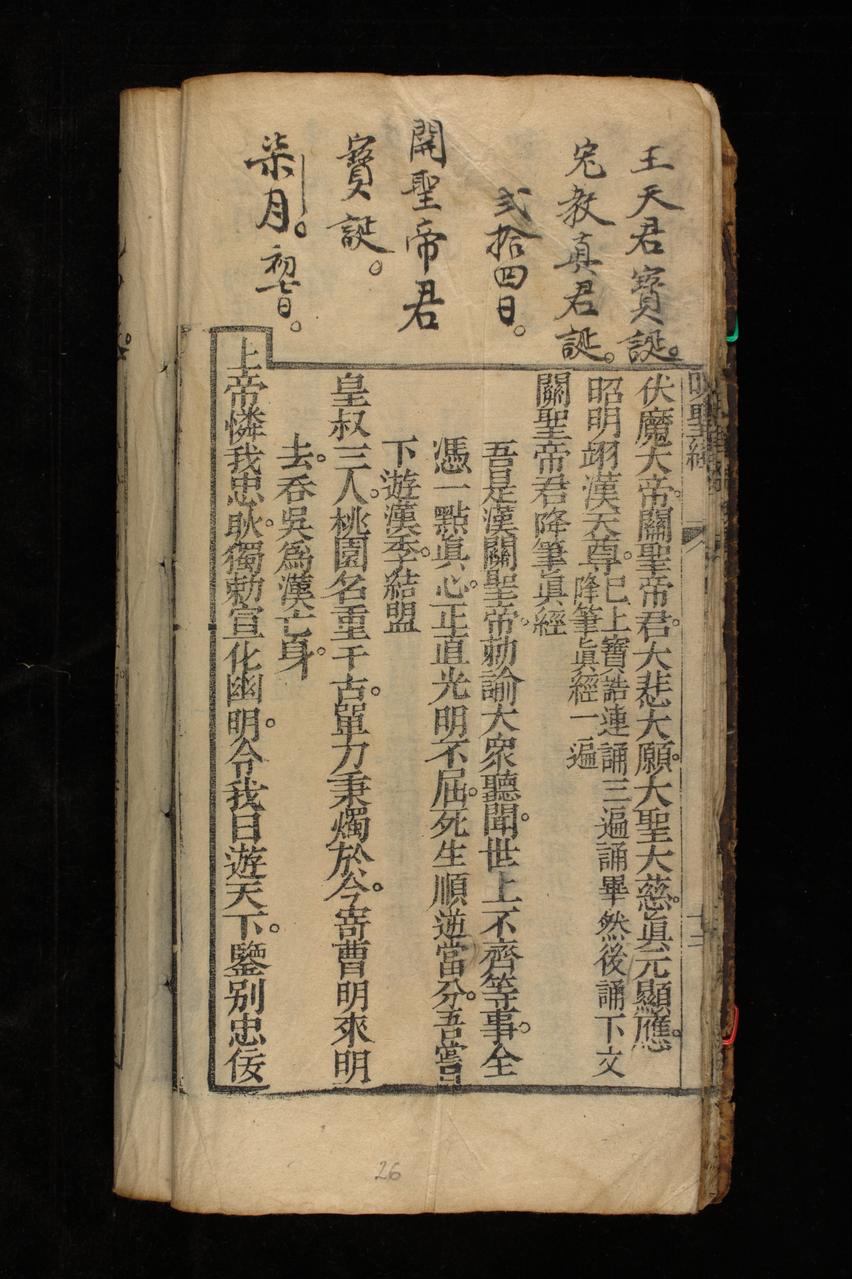 王天君寳誕。
宪教真君誕。
弍拾四日。
關聖帝君
寳誕。
柒月。初七日。
伏魔大帝。關聖帝君。大悲大願。大聖大慈。眞元顯應。
昭明翊漢天尊。已上寶誥連誦三遍誦畢然後誦下文
降筆眞經一遍
關聖帝君降筆眞經
吾是漢關聖帝。勅諭大衆聽聞。世上不齊等事。全
憑一點眞心。正直光明不屈。死生順逆當分。吾當
下遊漢季。結盟
皇叔三人。桃園名重千古。單力秉燭於今。寄曹明來明
去。吞吳爲漢亡身。
上帝憐我忠耿。獨勅宣化幽明。令我日遊天下。鑒别忠佞
26